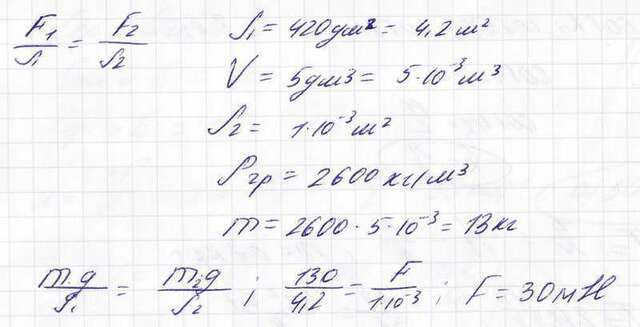 F₁/S₁ = F₂/S₂
S₁ = 420дм² = 4,2 м²
V = 5дм³ = 5·10⁻³м³
S₂ = 1·10⁻³м²
ρгр = 2600кг/м³
m = 2600·5·10⁻³ = 13кг
m·g/S₁ = m₂g/S₂ ; 130/4,2 = F/1·10⁻³ ; F = 30мН